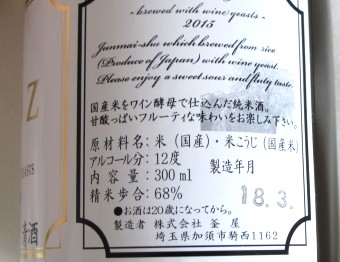 - brewed with wine yeasts -
2015
Junmai-shu which brewed from rice
(Produce of Japan) with wine yeast.
Please enjoy a sweet sour and fluty taste.
国産米をワイン酵母で仕込んだ純米酒。
甘酸っぱいフルーティな味わいをお楽しみ下さい。
原材料名：米（国産）・米こうじ（国産米）
アルコール分：12度
製造年月
内容量：300ml
18.3.
精米歩合：68%
●お酒は20歳になってから。
製造者 株式会社 釜屋
埼玉県加須市騎西1162
Z
清酒